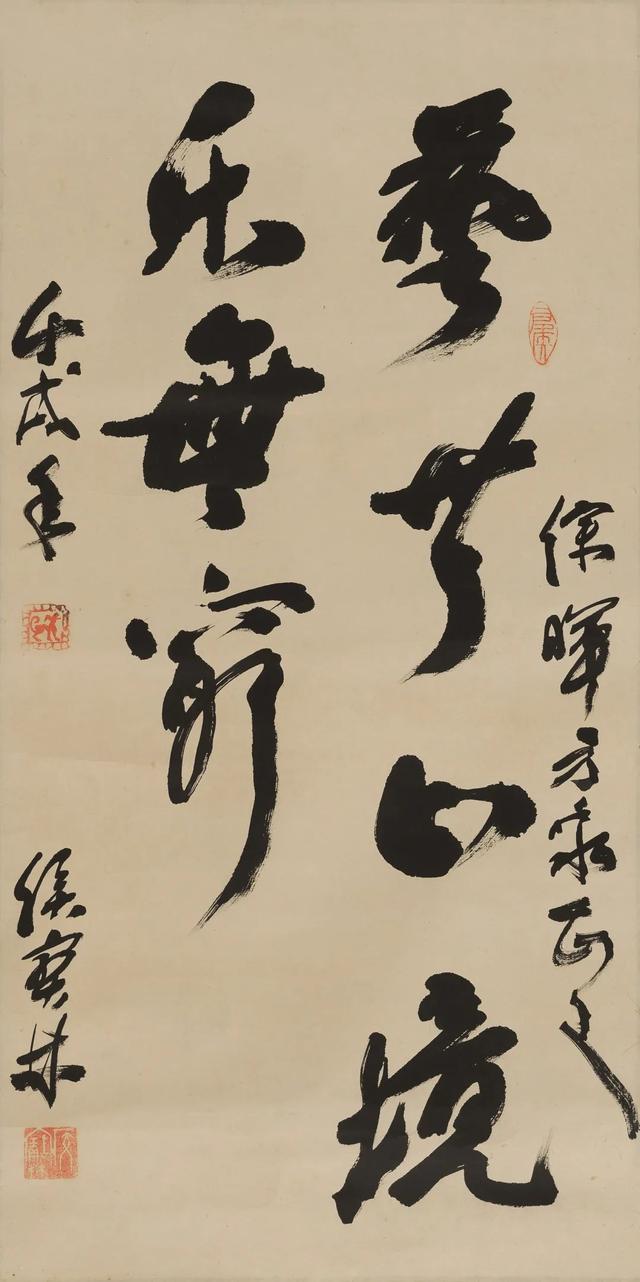 徐暉方家正之
藝無止境
乐無窮
壬戌年
侯寶林